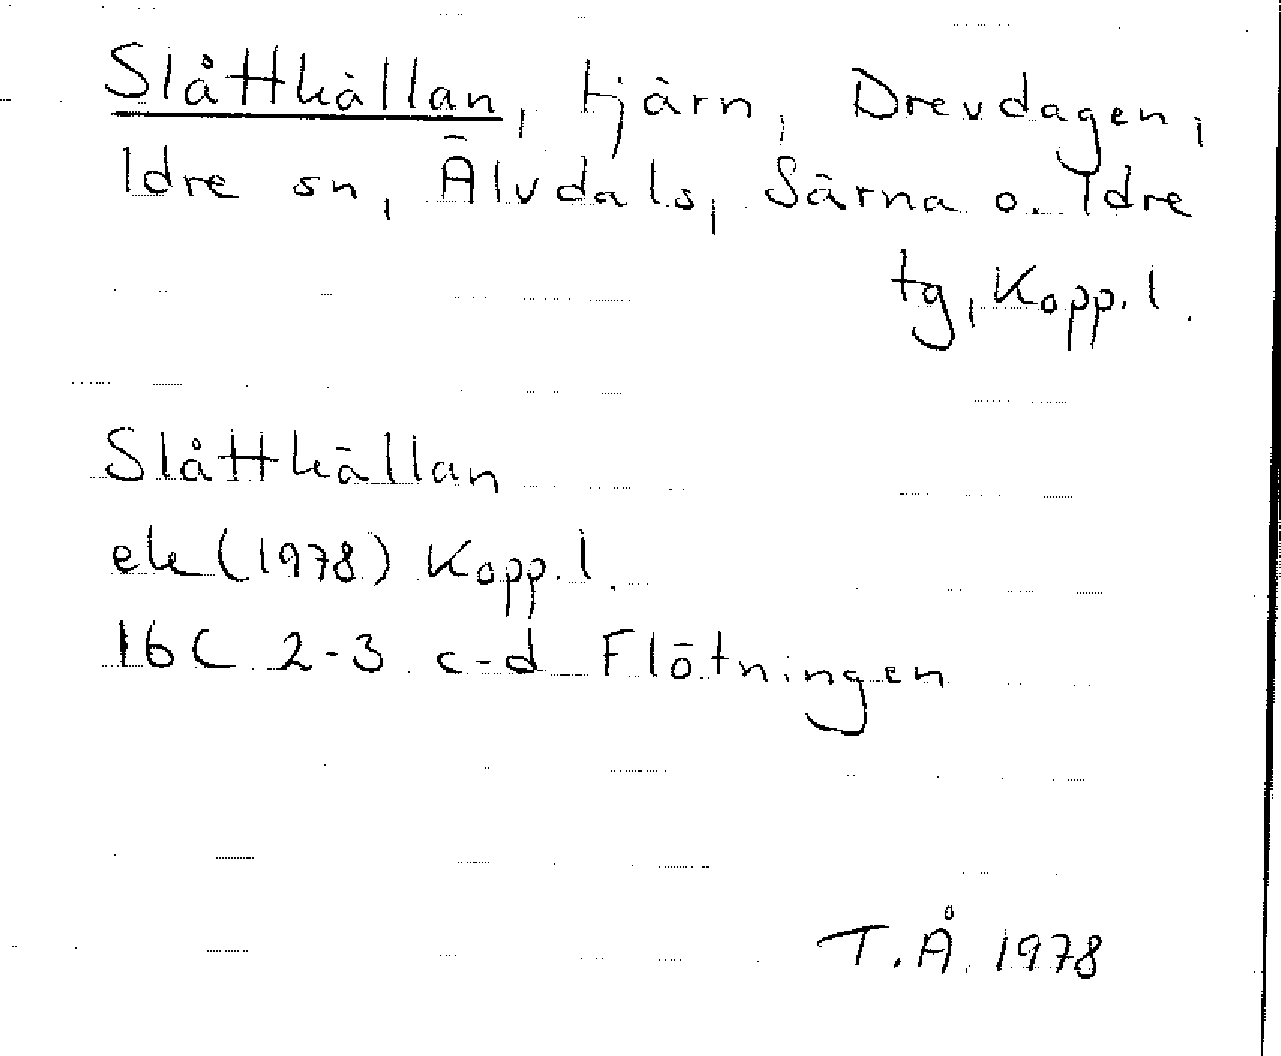 Slåttkällan, tjärn, Drevdagen,
Idre sn, Älvdals, Särna o. Idre
tg, Kopp. l.
Slåttkällan
ek (1978) Kopp. l.
16C 2-3 c-d Flötningen
T. Å. 1978